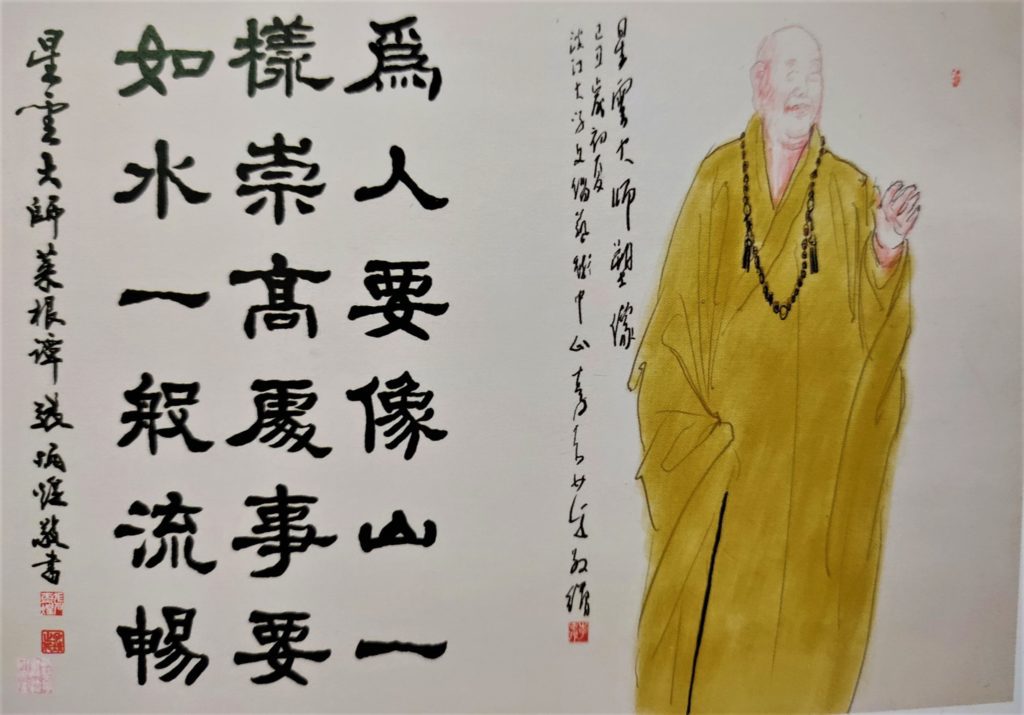 星雲大师塑像
己丑歲初夏
淡江大学文錙藝術中心
爲人要像山一
樣崇高處事要
如水一般流暢
星雲大師菜根譚 張炳煌敬書